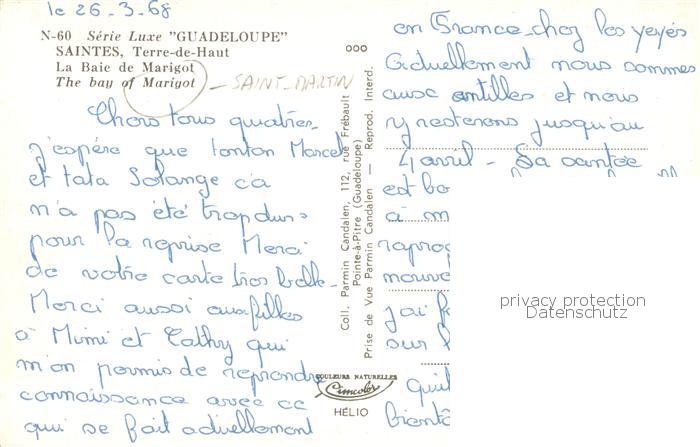 le 26-3-68
N-60 Série Luxe "GUADELOUPE"
SAINTES, Terre-de-Haut
La Baie de Marigot
The bay of Marigot - SAINT-MARTIN
Chers tous quatres-
j'espère que tonton Marcel
et tata Solange ça
n'a pas été trop dur
pour la reprise Merci
de votre carte très belle-
Merci aussi aux filles
à Mimi et Cathy qui
m'on permis de reprendre
connaissance avec ce
qui se fait actuellement
Coll. Parmin Candalen, 112, rue Frébault
Pointe-à-Pitre (Guadeloupe)
Prise de Vue Parmin Candalen - Reprod. Interd.
COULEURS NATURELLES
Cimcolor
HÉLIO
en France chez les yéyés
Actuellement nous sommes
aux antilles et nous
y resterons jusqu'au
4 avril - La santée
est bo
à m
rapro
mouve
j'ai f
sur l
qu'il
bientô
privacy protection
Datenschutz